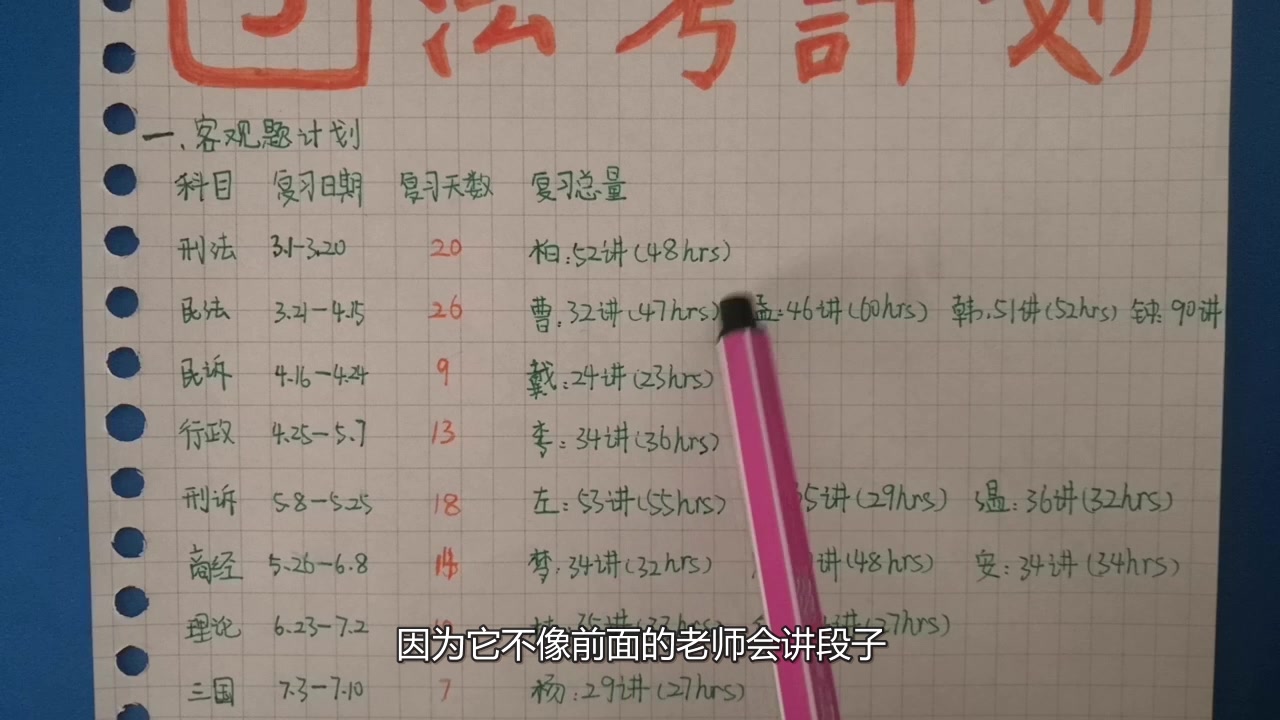 法考計划
一、客观题计划
科目 复习日期 复习天数 复习总量
刑法 3.1-3.20 20 柏:52讲(48hrs)
民法 3.21-4.15 26 曹:32讲(47hrs) 孟:46讲(60hrs) 韩:51讲(52hrs) 钟:90讲
民诉 4.16-4.24 9 戴:24讲(23hrs)
行政 4.25-5.7 13 李:34讲(36hrs)
刑诉 5.8-5.25 18 左:53讲(55hrs) 35讲(29hrs) 温:36讲(32hrs)
商经 5.26-6.8 14 梦:34讲(32hrs) 讲(48hrs) 安:34讲(34hrs)
理论 6.23-7.2 讲(27hrs)
因为它不像前面的老师会讲段子
三国 7.3-7.10 7 杨:29讲(27hrs)